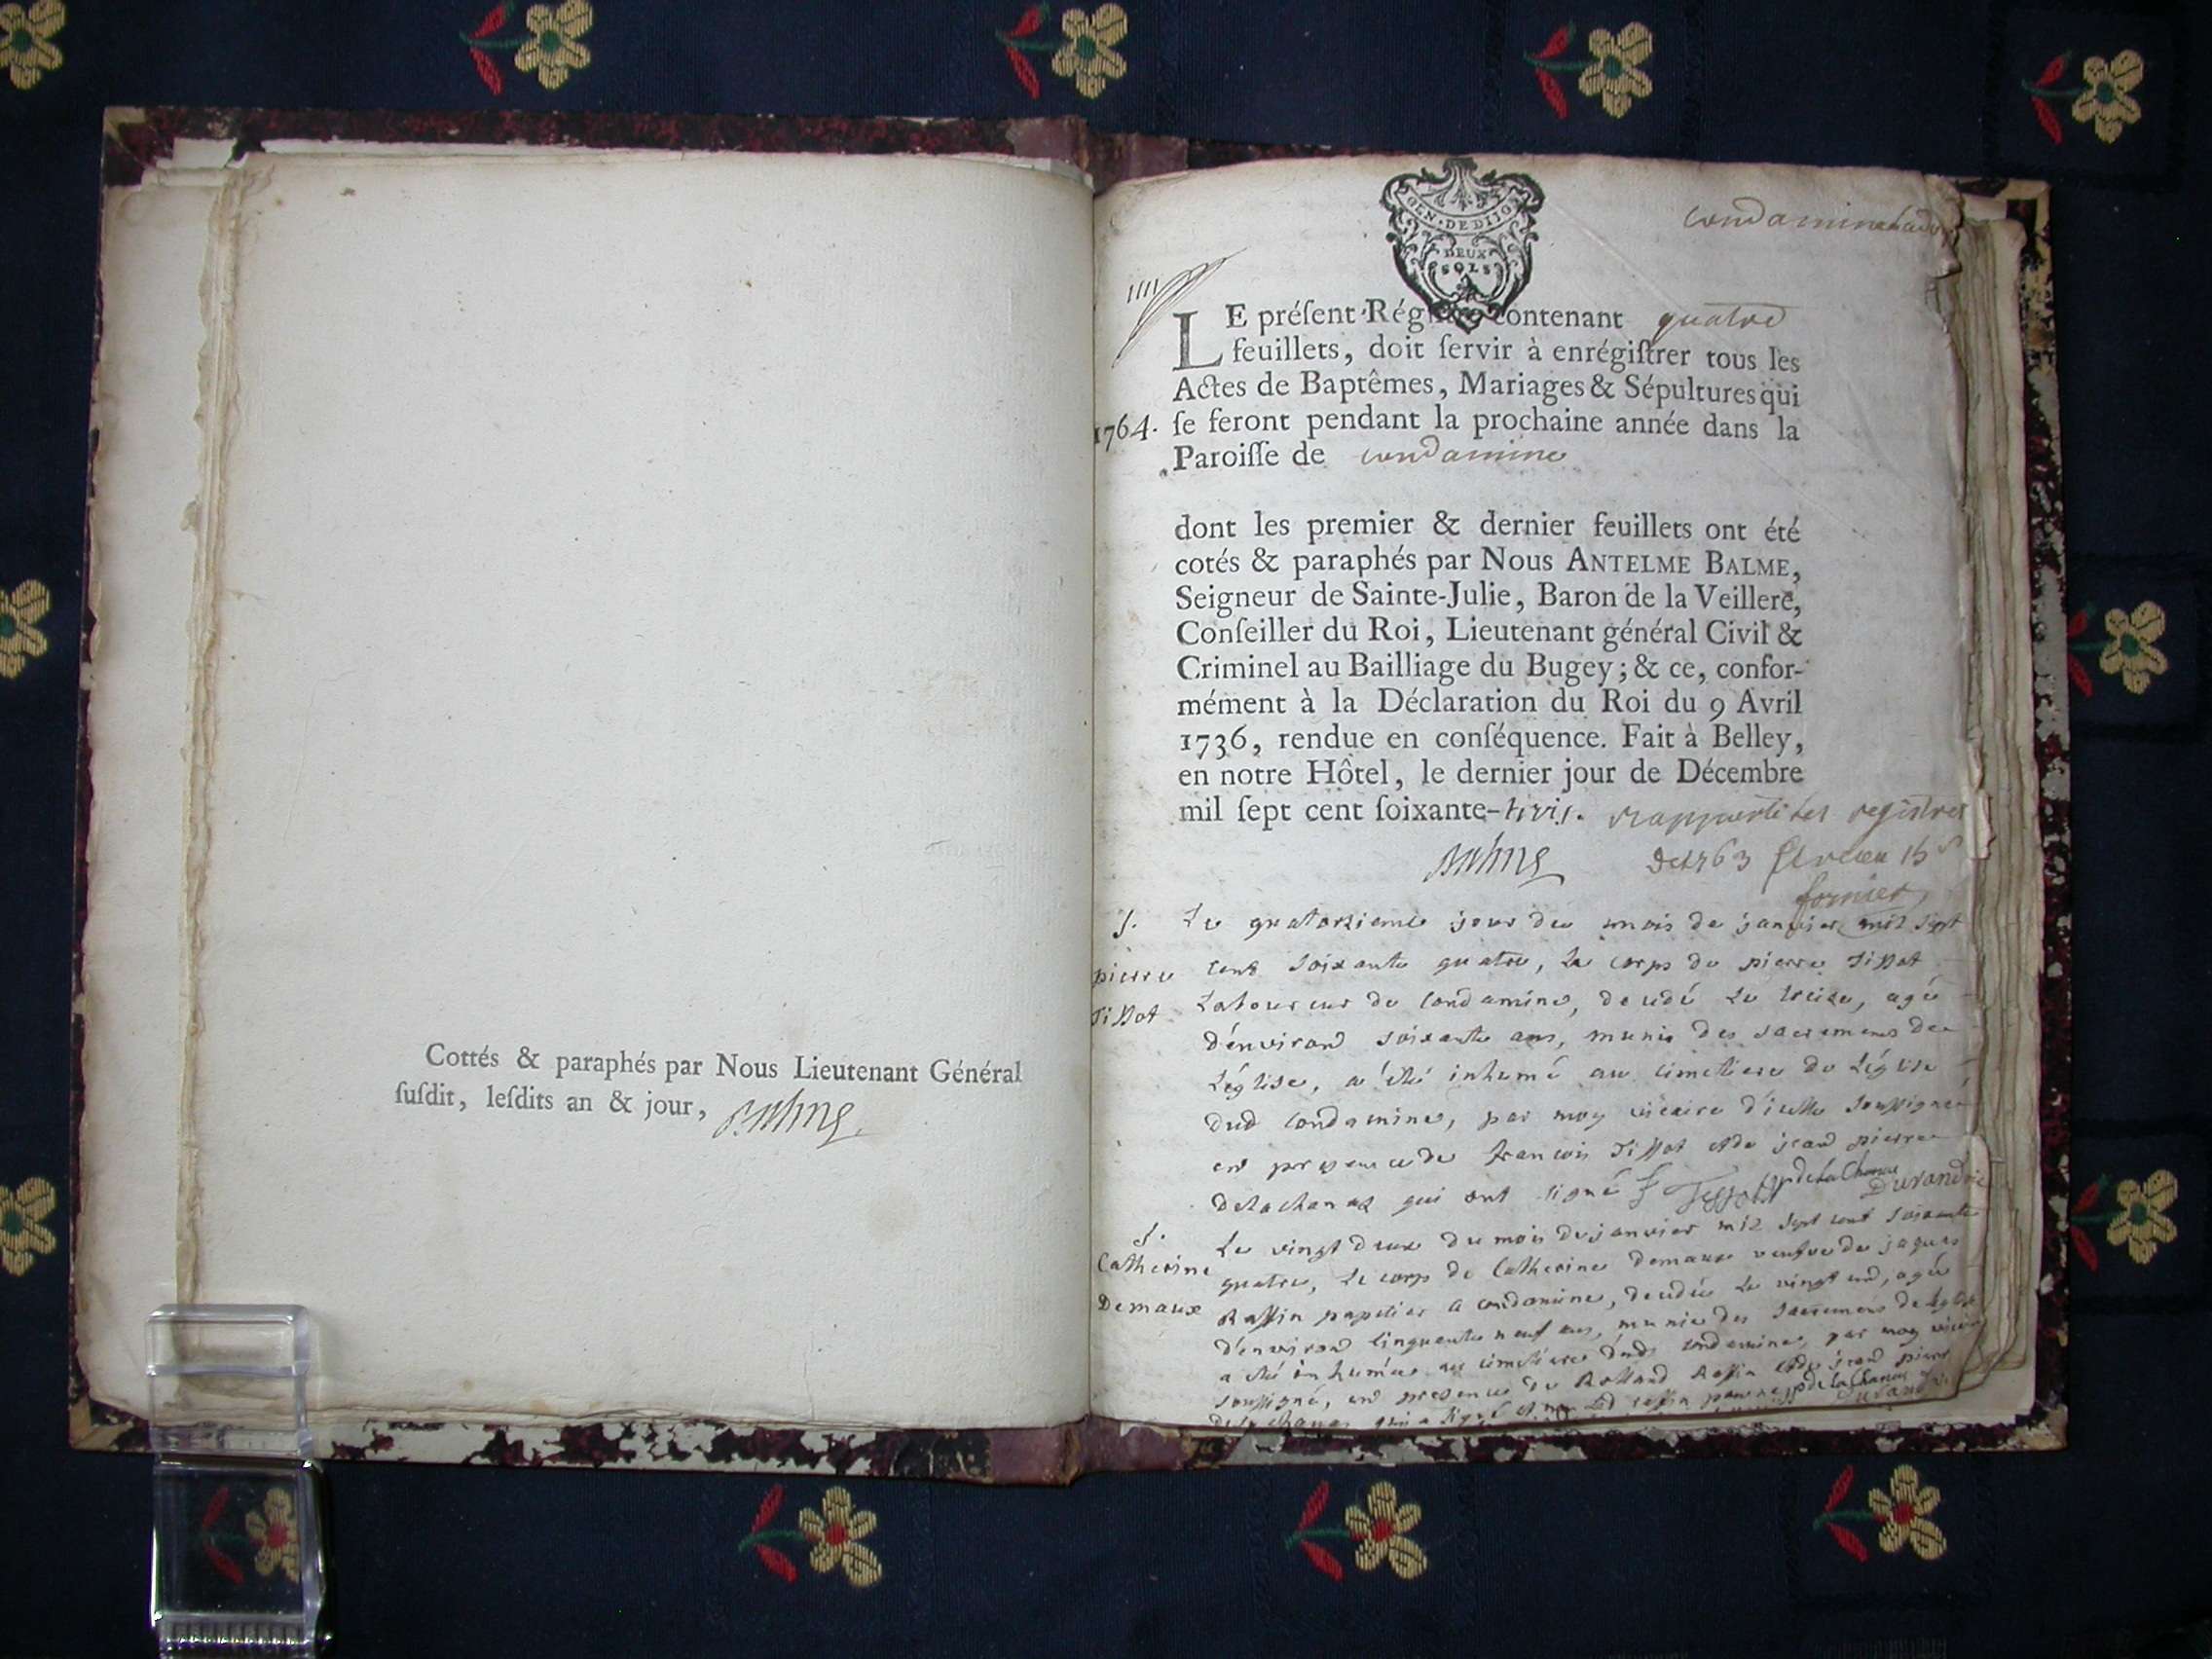 Cottés & paraphés par Nous Lieutenant Général
ſuſdit, leſdits an & jour,
GEN. DE DIJON
DEUX
SOLS
LE préſent Régiſtre contenant quatre
feuillets, doit ſervir à enrégiſtrer tous les
Actes de Baptêmes, Mariages & Sépultures qui
1764. ſe feront pendant la prochaine année dans la
Paroiſſe de Condamine
dont les premier & dernier feuillets ont été
cotés & paraphés par Nous ANTELME BALME,
Seigneur de Sainte-Julie, Baron de la Veillere,
Conſeiller du Roi, Lieutenant général Civil &
Criminel au Bailliage du Bugey; & ce, confor-
mément à la Déclaration du Roi du 9 Avril
1736, rendue en conſéquence. Fait à Belley,
en notre Hôtel, le dernier jour de Décembre
mil ſept cent ſoixante-trois. rapporté les registres
Balme de 1763
S. Le quatorzieme jour du mois de janvier mil sept
pierre cent soixante quatre, le corps de pierre Tissot
Tissot Laboureur de Condamine, decedé le treize, agé
d'environ soixante ans, munis des sacremens de
L'église, a été inhumé au cimetiere de L'église
dud Condamine, par moy vicaire d'icelle soussigné
en presence de francois Tissot et de jean pierre
delachanaz qui ont signé f Tissot jp de La Chanaz Durand
S. Le vingt deux du mois de janvier mil sept cent soixante
Catherine quatre, le corps de Catherine demaux veufve de jaques
Demaux Raffin papetier a condamine, decedée le vingt un, agée
d'environ cinquante neuf ans, munie des sacremens de L'église
a été inhumée au cimetiere dud condamine, par moy vicaire
soussigné, en presence de Rolland Raffin et de jean pierre
delachanaz qui a signé et non led Raffin jp de La Chanaz Durand